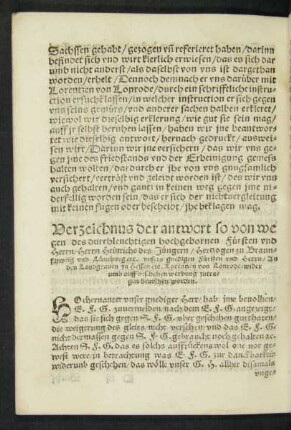 Sachssen gehabt/ gezogen vñ referieret haben/ darinn
befindet sich vnd wirt klerlich erwiesen/ das es sich dar
umb nicht anderst/ als daselbst von vns ist dargethan
worden/ erhelt/ Dennoch demnach er vns darüber mit
Lorentzen von Loprode/ durch ein schrifftliche instru-
ction ersucht lassen/ in welcher instruction er sich gegen
vns seins gemüts/ vnd anderer sachen halben erkleret/
wiewol wir dieselbig erklerung/ wie gut sie sein mag/
auff jr selbst beruhen lassen/ haben wir jne beantwor-
tet wie dieselbig antwort/ hernach gedruckt/ auswei-
sen wirt/ Darinn wir jne versichern/ das wir vns ge-
gen jne des friedstands vnd der Erbeinigung gemess
halten wolten/ das durcher jhe von vns vnglimpflich
versichert/ vertröst vnd zeleidt worden ist/ des wir vns
auch gehalten/ vnd gantz in keinen weg gegen jme ni-
derfellig worden sein/ das er sich der nichtuergleitung
mit keinen fugen oder bescheidt/ jhe beklagen mag.
Verzeichnus der antwort so von we
gen des durchleuchtigen hochgebornen Fürsten vnd
Herrn Herrn Heinrichs des Jüngern/ Hertzogen zu Braun-
schweig vnd Lüneburg etc. vnsers gnedigen Fürsten vnd Herrn/ An
den Landgrauen zu Hessen etc. Lorentzen von Loprode wider
vmb auff solchen werbung zutra-
gen beuolhen worden.
HOchernanter vnser gnediger Herr/ hab jme beuolhen/
E. F. G. zuuermelden nach dem E. F. G. angezeigt/
das sie sich gegen S. F. G. aber geschehen gutthaten/
die weigerung des gleits nicht versehen/ vnd das E. F. G.
nicht dermassen gegen S. F. G. gebraucht noch gehalten ac.
Achten S. F. G. das es solchs auffrückens wol one not ge-
west were in betrachtung was E. F. G. zur danckbarkeit
widerumb geschehen/ das wölle vnser G. H. allher dißmals
vnges